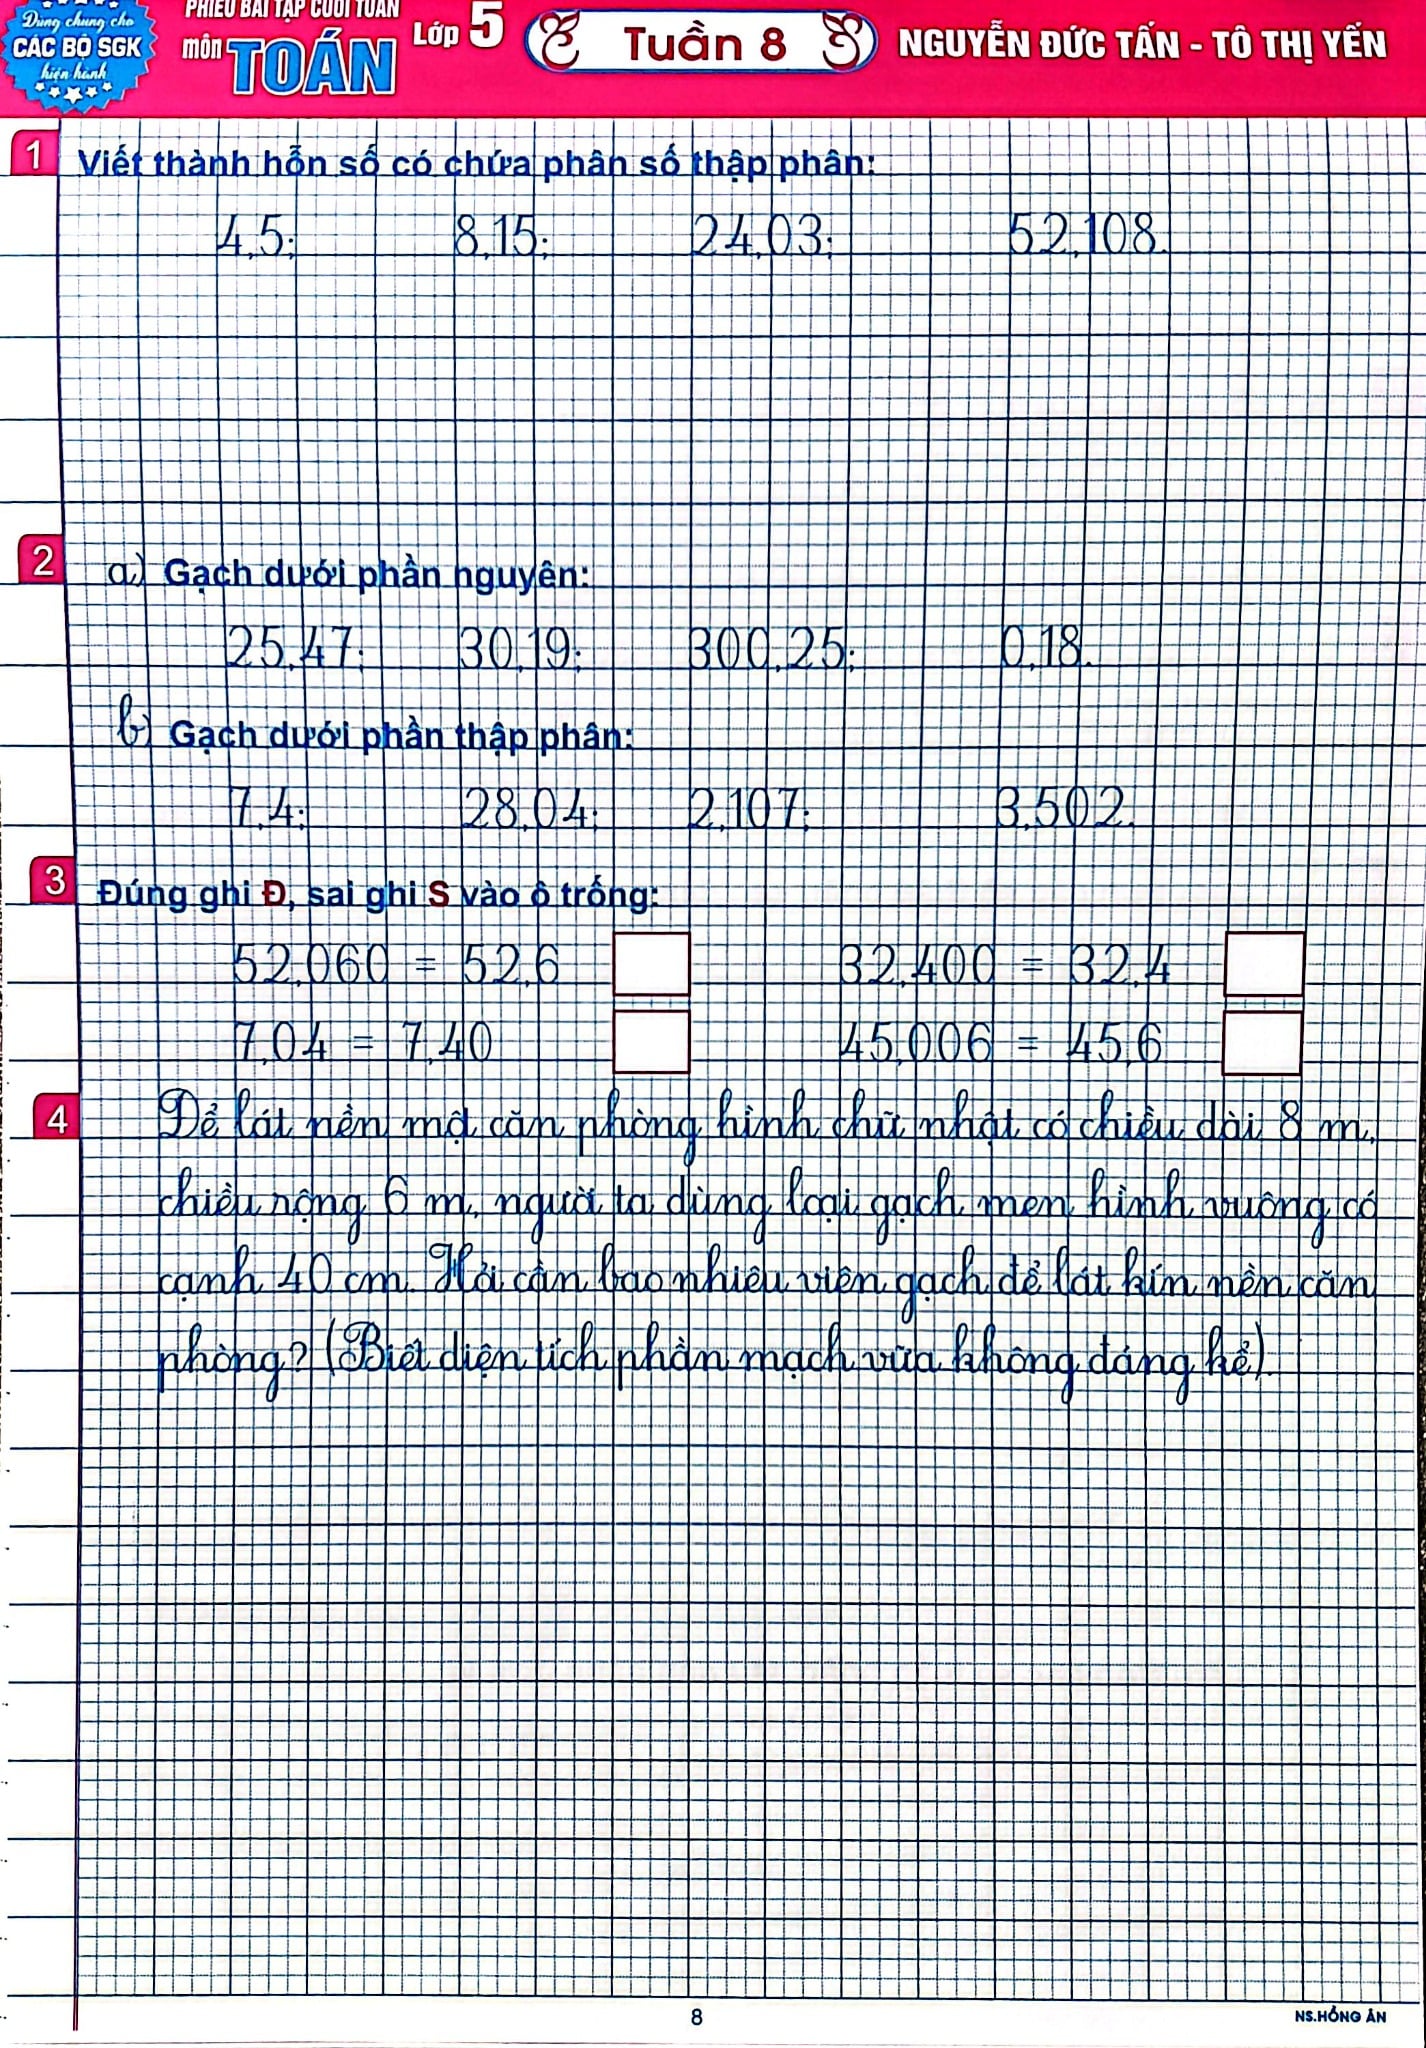 Dùng chung cho
CÁC BỘ SGK
hiện hành
PHIẾU BÀI TẬP CUỐI TUẦN
môn TOÁN Lớp 5
Tuần 8
NGUYỄN ĐỨC TẤN - TÔ THỊ YẾN
1 Viết thành hỗn số có chứa phân số thập phân:
4,5; 8,15; 24,03; 52,108.
2 a) Gạch dưới phần nguyên:
25,47; 30,19; 300,25; 0,18.
b) Gạch dưới phần thập phân:
7,4; 28,04; 2,107; 3,502.
3 Đúng ghi Đ, sai ghi S vào ô trống:
52,060 = 52,6 32,400 = 32,4
7,04 = 7,40 45,006 = 45,6
4 Để lát nền một căn phòng hình chữ nhật có chiều dài 8 m,
chiều rộng 6 m, người ta dùng loại gạch men hình vuông có
cạnh 40 cm. Hỏi cần bao nhiêu viên gạch để lát kín nền căn
phòng? (Biết diện tích phần mạch vữa không đáng kể).
8
NS.HỒNG ÂN